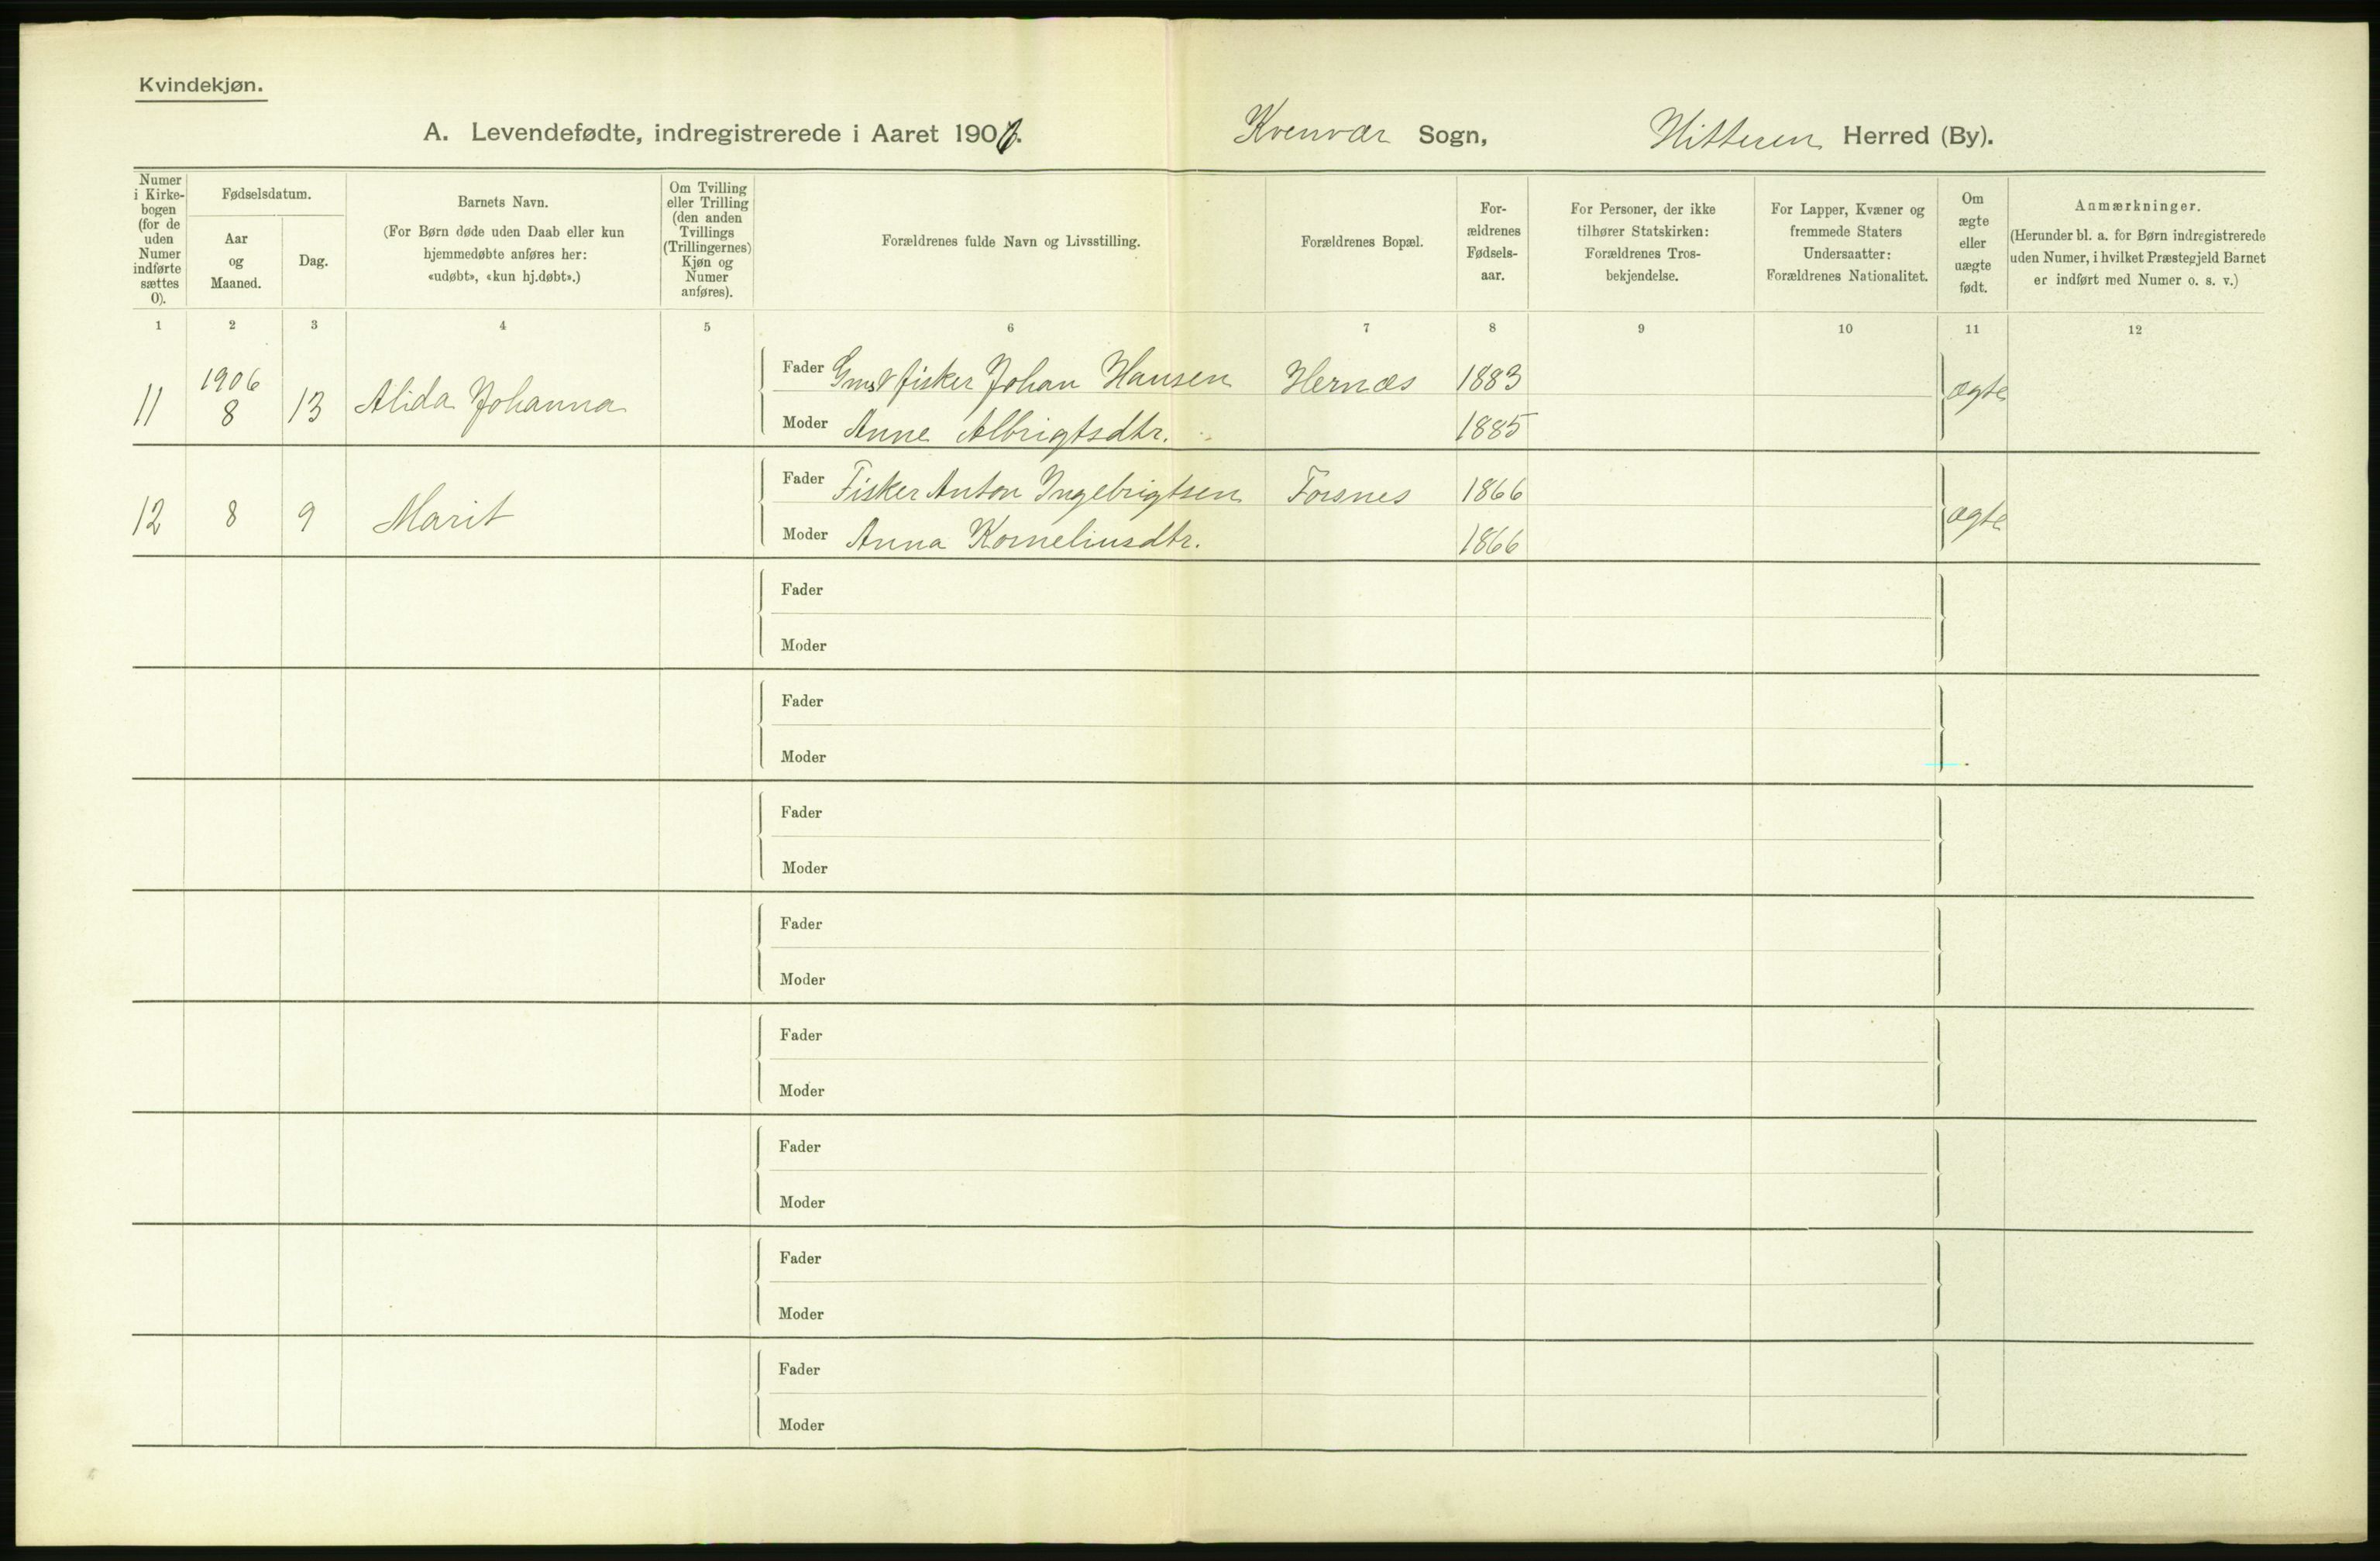 Kvindekjøn.
A. Levendefødte, indregistrerede i Aaret 1906. Kvenvær Sogn, Hitteren Herred (By).
Numer i Kirkebogen (for de uden Numer indførte sættes 0).
Fødselsdatum.
Aar og Maaned.
Dag.
Barnets Navn.
(For Børn døde uden Daab eller kun hjemmedøbte anføres her: «udøbt», «kun hj.døbt».)
Om Tvilling eller Trilling (den anden Tvillings (Trillingernes) Kjøn og Numer anføres).
Forældrenes fulde Navn og Livsstilling.
Forældrenes Bopæl.
For-ældrenes Fødsels-aar.
For Personer, der ikke tilhører Statskirken: Forældrenes Tros-bekjendelse.
For Lapper, Kvæner og fremmede Staters Undersaatter: Forældrenes Nationalitet.
Om ægte eller uægte født.
Anmærkninger.
(Herunder bl. a. for Børn indregistrerede uden Numer, i hvilket Præstegjeld Barnet er indført med Numer o. s. v.)
1 2 3 4 5 6 7 8 9 10 11 12
11 1906 8 13 Alida Johanna Fader Gmd fisker Johan Hansen Hernæs 1883 ægte
Moder Anne Albrigtsdtr. 1885
12 8 9 Marit Fader Fisker Anton Ingebrigtsen Forsnes 1866 ægte
Moder Anna Korneliusdtr. 1866
Fader
Moder
Fader
Moder
Fader
Moder
Fader
Moder
Fader
Moder
Fader
Moder
Fader
Moder
Fader
Moder